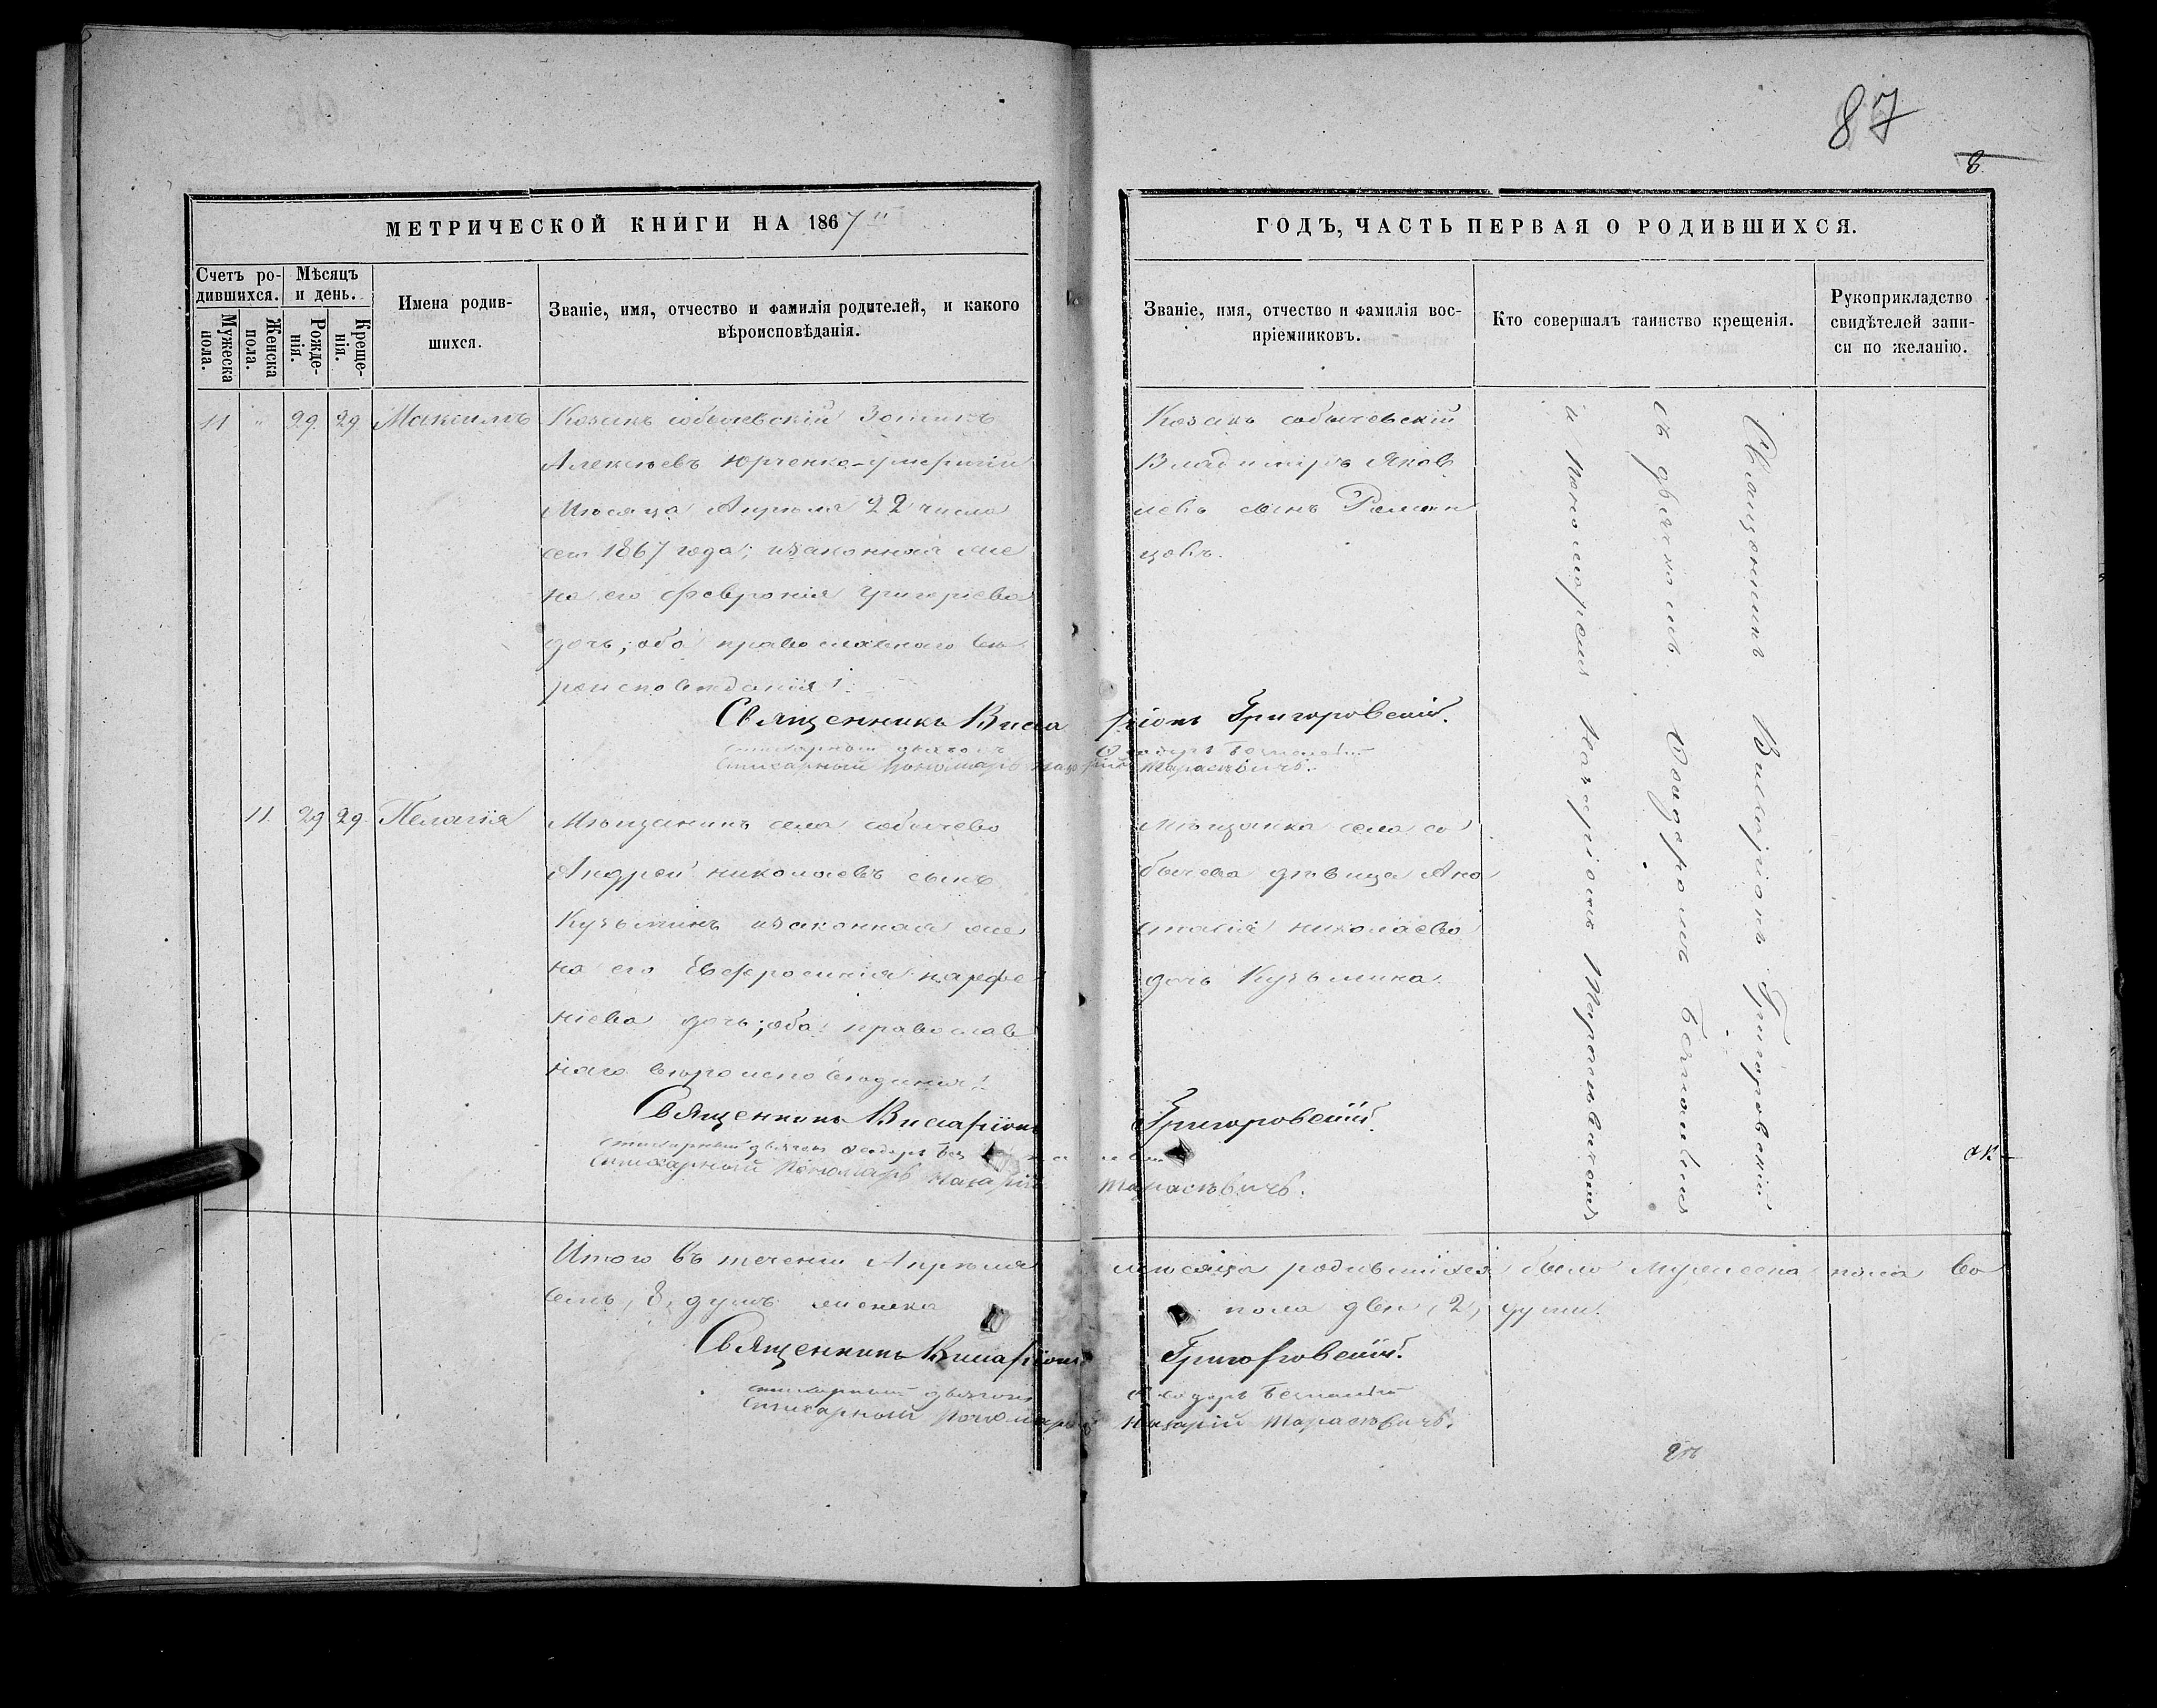 87
8
МЕТРИЧЕСКОЙ КНИГИ НА 1867
ГОДЪ, ЧАСТЬ ПЕРВАЯ О РОДИВШИХСЯ.
Счетъ ро-
дившихся.
Мѣсяцъ
и день.
Мужеска
пола.
Женска
пола.
Рожде-
нія.
Креще-
нія.
Имена родив-
шихся.
Званіе, имя, отчество и фамилія родителей, и какого
вѣроисповѣданія.
Званіе, имя, отчество и фамилія вос-
пріемниковъ.
Кто совершалъ таинство крещенія.
Рукоприкладство
свидѣтелей запи-
си по желанію.
11 " 29 29 Максимъ
Козакъ собычевскій
Алексѣевъ Юрченко-умершій
Мѣсяца Апрѣля 22 числа
сего 1867 года; изаконная же
на его Феврония григоріева
дочь; оба православнаго вѣ
роисповѣданія.
Козакъ собычевскій
Владимиръ Яков
левъ сынъ Роман
цовъ.
Священникъ Висаріонъ Григоровскій.
стихарный дьячокъ Феодоръ
Стихарный пономарь Назарій Тарасѣвичъ.
11. 29 29. Пелагія
Мѣщанинъ села собычева
Андрей николаевъ сынъ
Кузьминъ изаконная же
на его Евфросинія парфе
ніева дочь; оба православ
наго вѣроисповѣданія.
Мѣщанка села со
бычева дѣвица Ана
стасія николаева
дочь Кузьмина.
Священникъ Висаріонъ Григоровскій.
стихарный дьячокъ Феодоръ
Стихарный Пономарь Назарій Тарасѣвичъ.
Священникъ Висаріонъ Григоровскій
съ дьячкомъ Феодоромъ
и Пономоремъ Назаріемъ Тарасѣвичомъ
Итого въ теченіи Апрѣля мѣсяца родившихся было мужеска пола во
семь, 8, душъ женска пола двѣ, 2, души.
Священникъ Висаріонъ Григоровскій.
стихарный дьячокъ Феодоръ
Стихарный Пономарь Назарій Тарасѣвичъ.